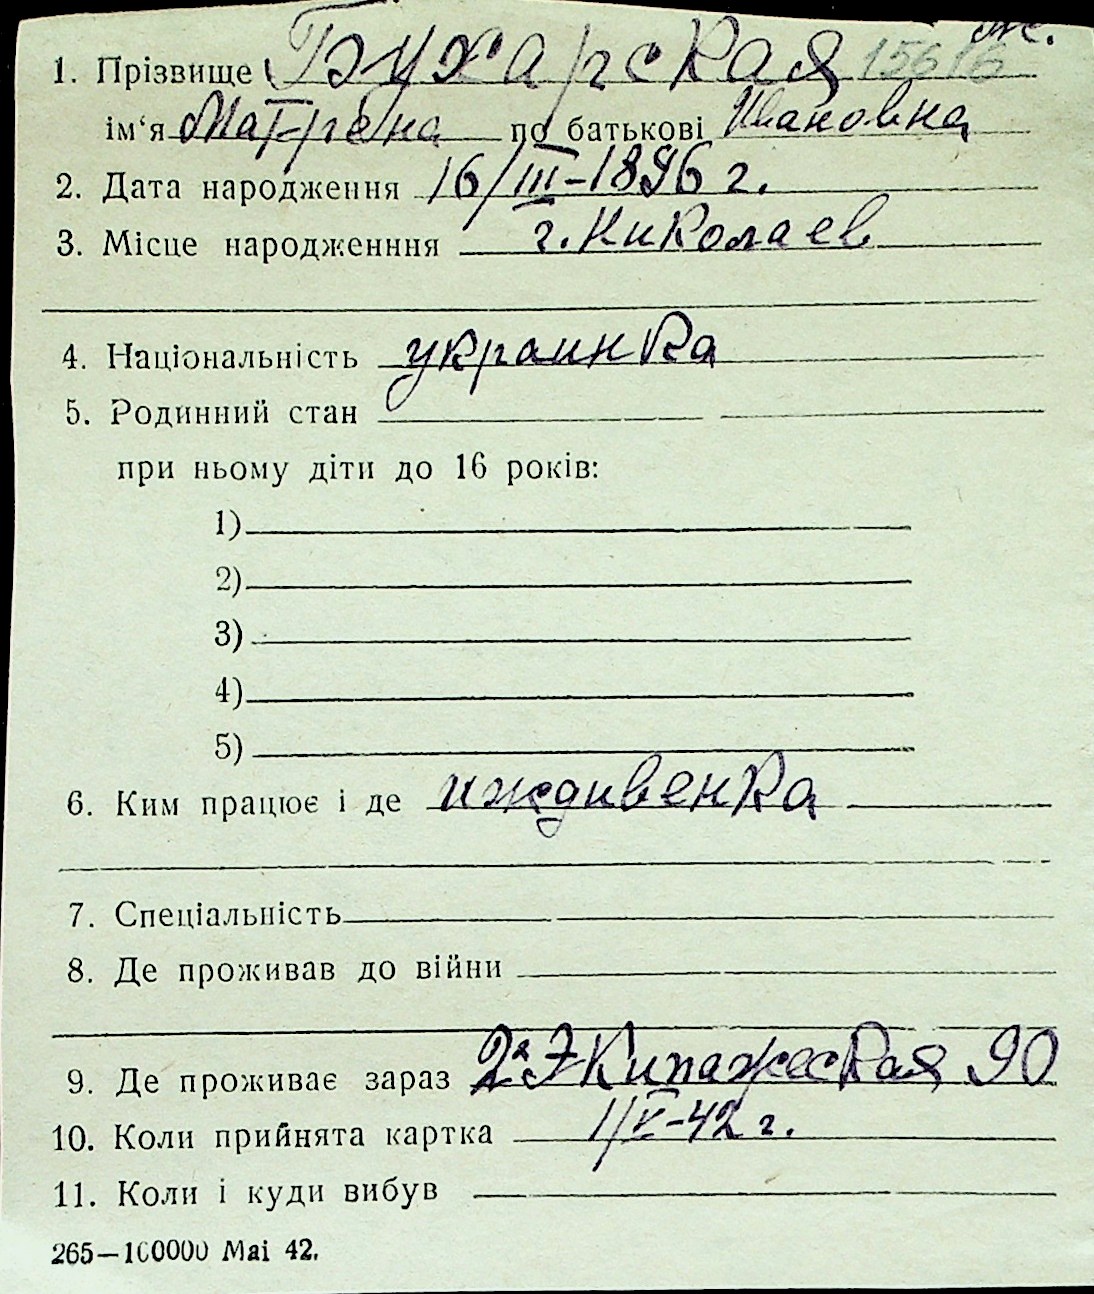 ж.
1. Прізвище Бухарская 15616
ім‘я Матрена по батькові Ивановна
2. Дата народження 16/III-1896 г.
3. Місце народженння г. Николаев
4. Національність украинка
5. Родинний стан
при ньому діти до 16 років:
1)
2)
3)
4)
5)
6. Ким працює і де иждивенка
7. Спеціальність
8. Де проживав до війни
9. Де проживає зараз 2я Экипажеская 90
10. Коли прийнята картка 1/V-42 г.
11. Коли і куди вибув
265—100000 Mai 42.